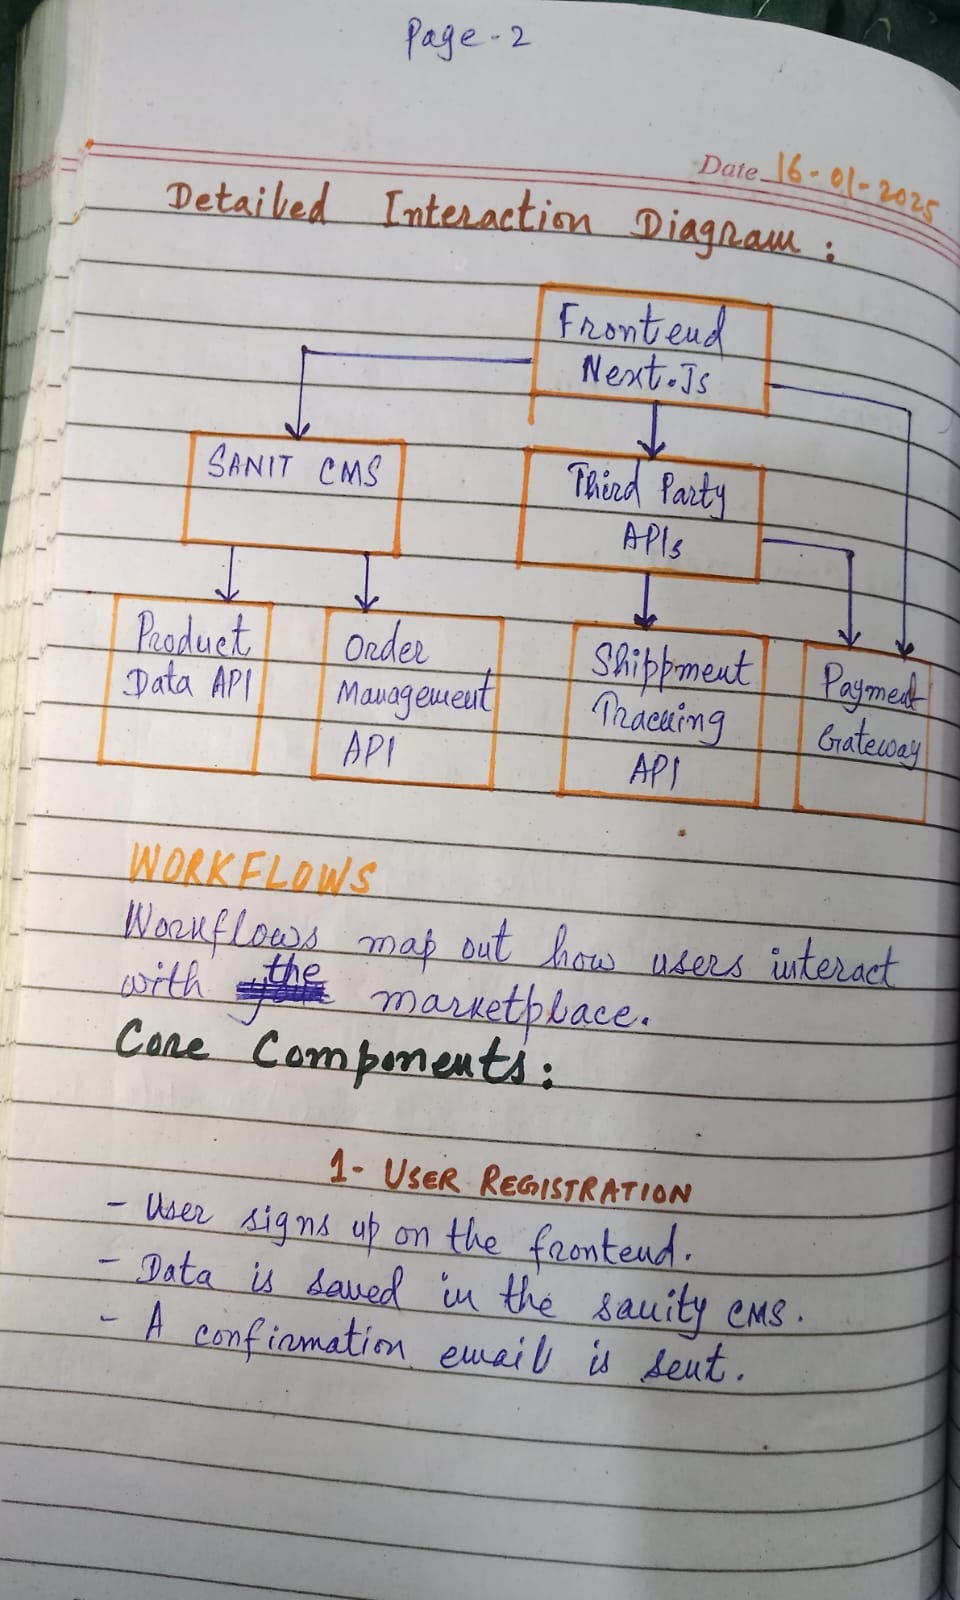 Page-2
Date 16-01-2025
Detailed Interaction Diagram :
Frontend
Next.Js
SANIT CMS
Third Party
APIs
Product
Data API
Order
Management
API
Shippment
Tracking
API
Payment
Gateway
WORKFLOWS
Workflows map out how users interact
with the marketplace.
Core Components:
1- USER REGISTRATION
- User signs up on the frontend.
- Data is saved in the sanity CMS.
- A confirmation email is sent.